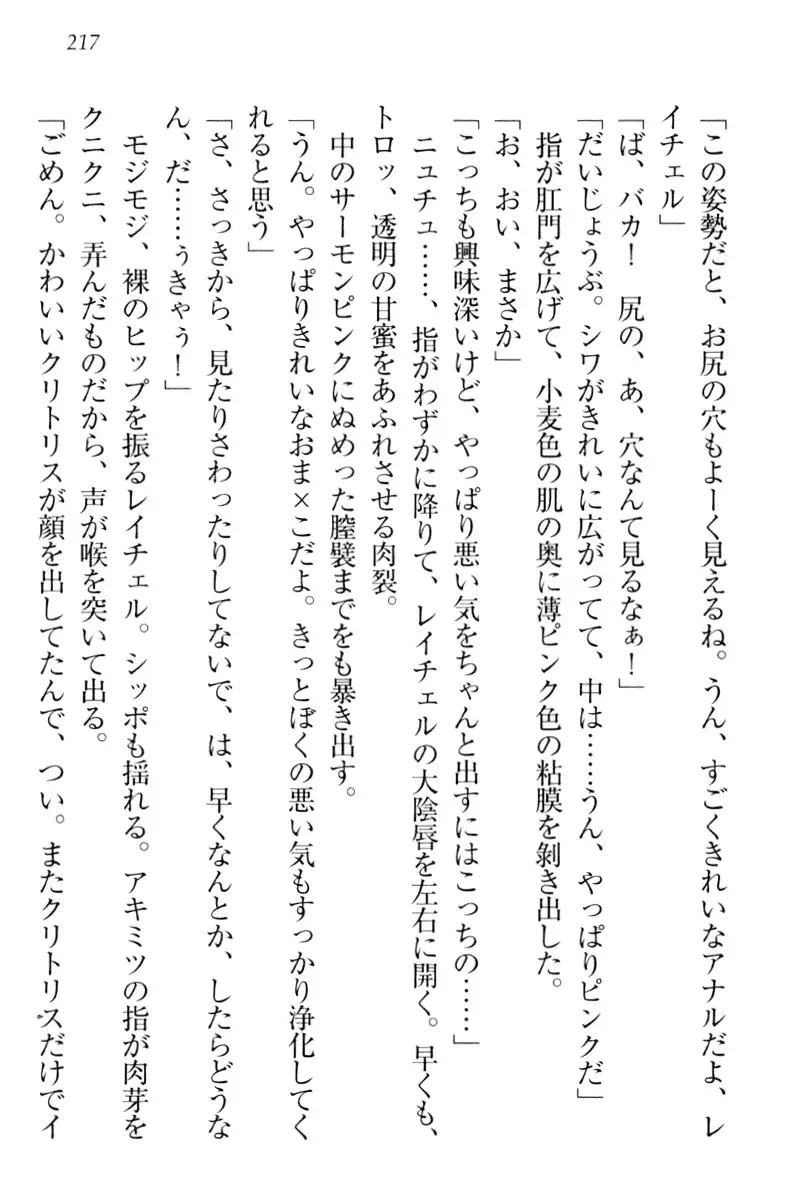 217
「この姿勢だと、お尻の穴もよーく見えるね。うん、すごくきれいなアナルだよ、レ
イチェル」
「ば、バカ！　尻の、あ、穴なんて見るなぁ！」
「だいじょうぶ。シワがきれいに広がってて、中は……うん、やっぱりピンクだ」
指が肛門を広げて、小麦色の肌の奥に薄ピンク色の粘膜を剥き出した。
「お、おい、まさか」
「こっちも興味深いけど、やっぱり悪い気をちゃんと出すにはこっちの……」
ニュチュ……、指がわずかに降りて、レイチェルの大陰唇を左右に開く。早くも、
トロッ、透明の甘蜜をあふれさせる肉裂。
中のサーモンピンクにぬめった膣襞までをも暴き出す。
「うん。やっぱりきれいなおま×こだよ。きっとぼくの悪い気もすっかり浄化してく
れると思う」
「さ、さっきから、見たりさわったりしてないで、は、早くなんとか、したらどうな
ん、だ……ぅきゃぅ！」
モジモジ、裸のヒップを振るレイチェル。シッポも揺れる。アキミツの指が肉芽を
クニクニ、弄んだものだから、声が喉を突いて出る。
「ごめん。かわいいクリトリスが顔を出してたんで、つい。またクリトリスだけでイ